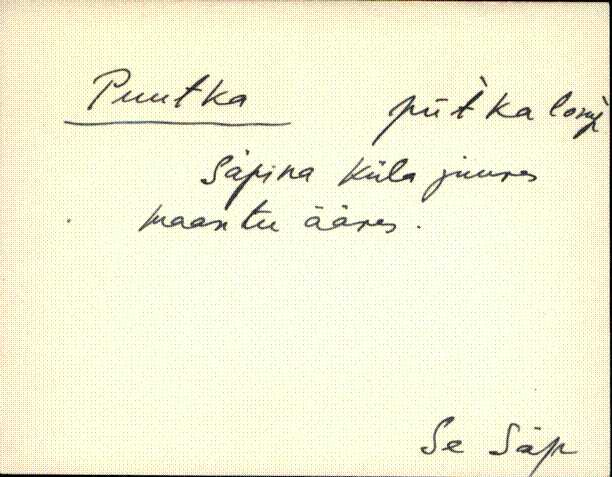 Puutka pūt̀ka lomp̀
Säpina küla juures
maantee ääres.
Se Säp